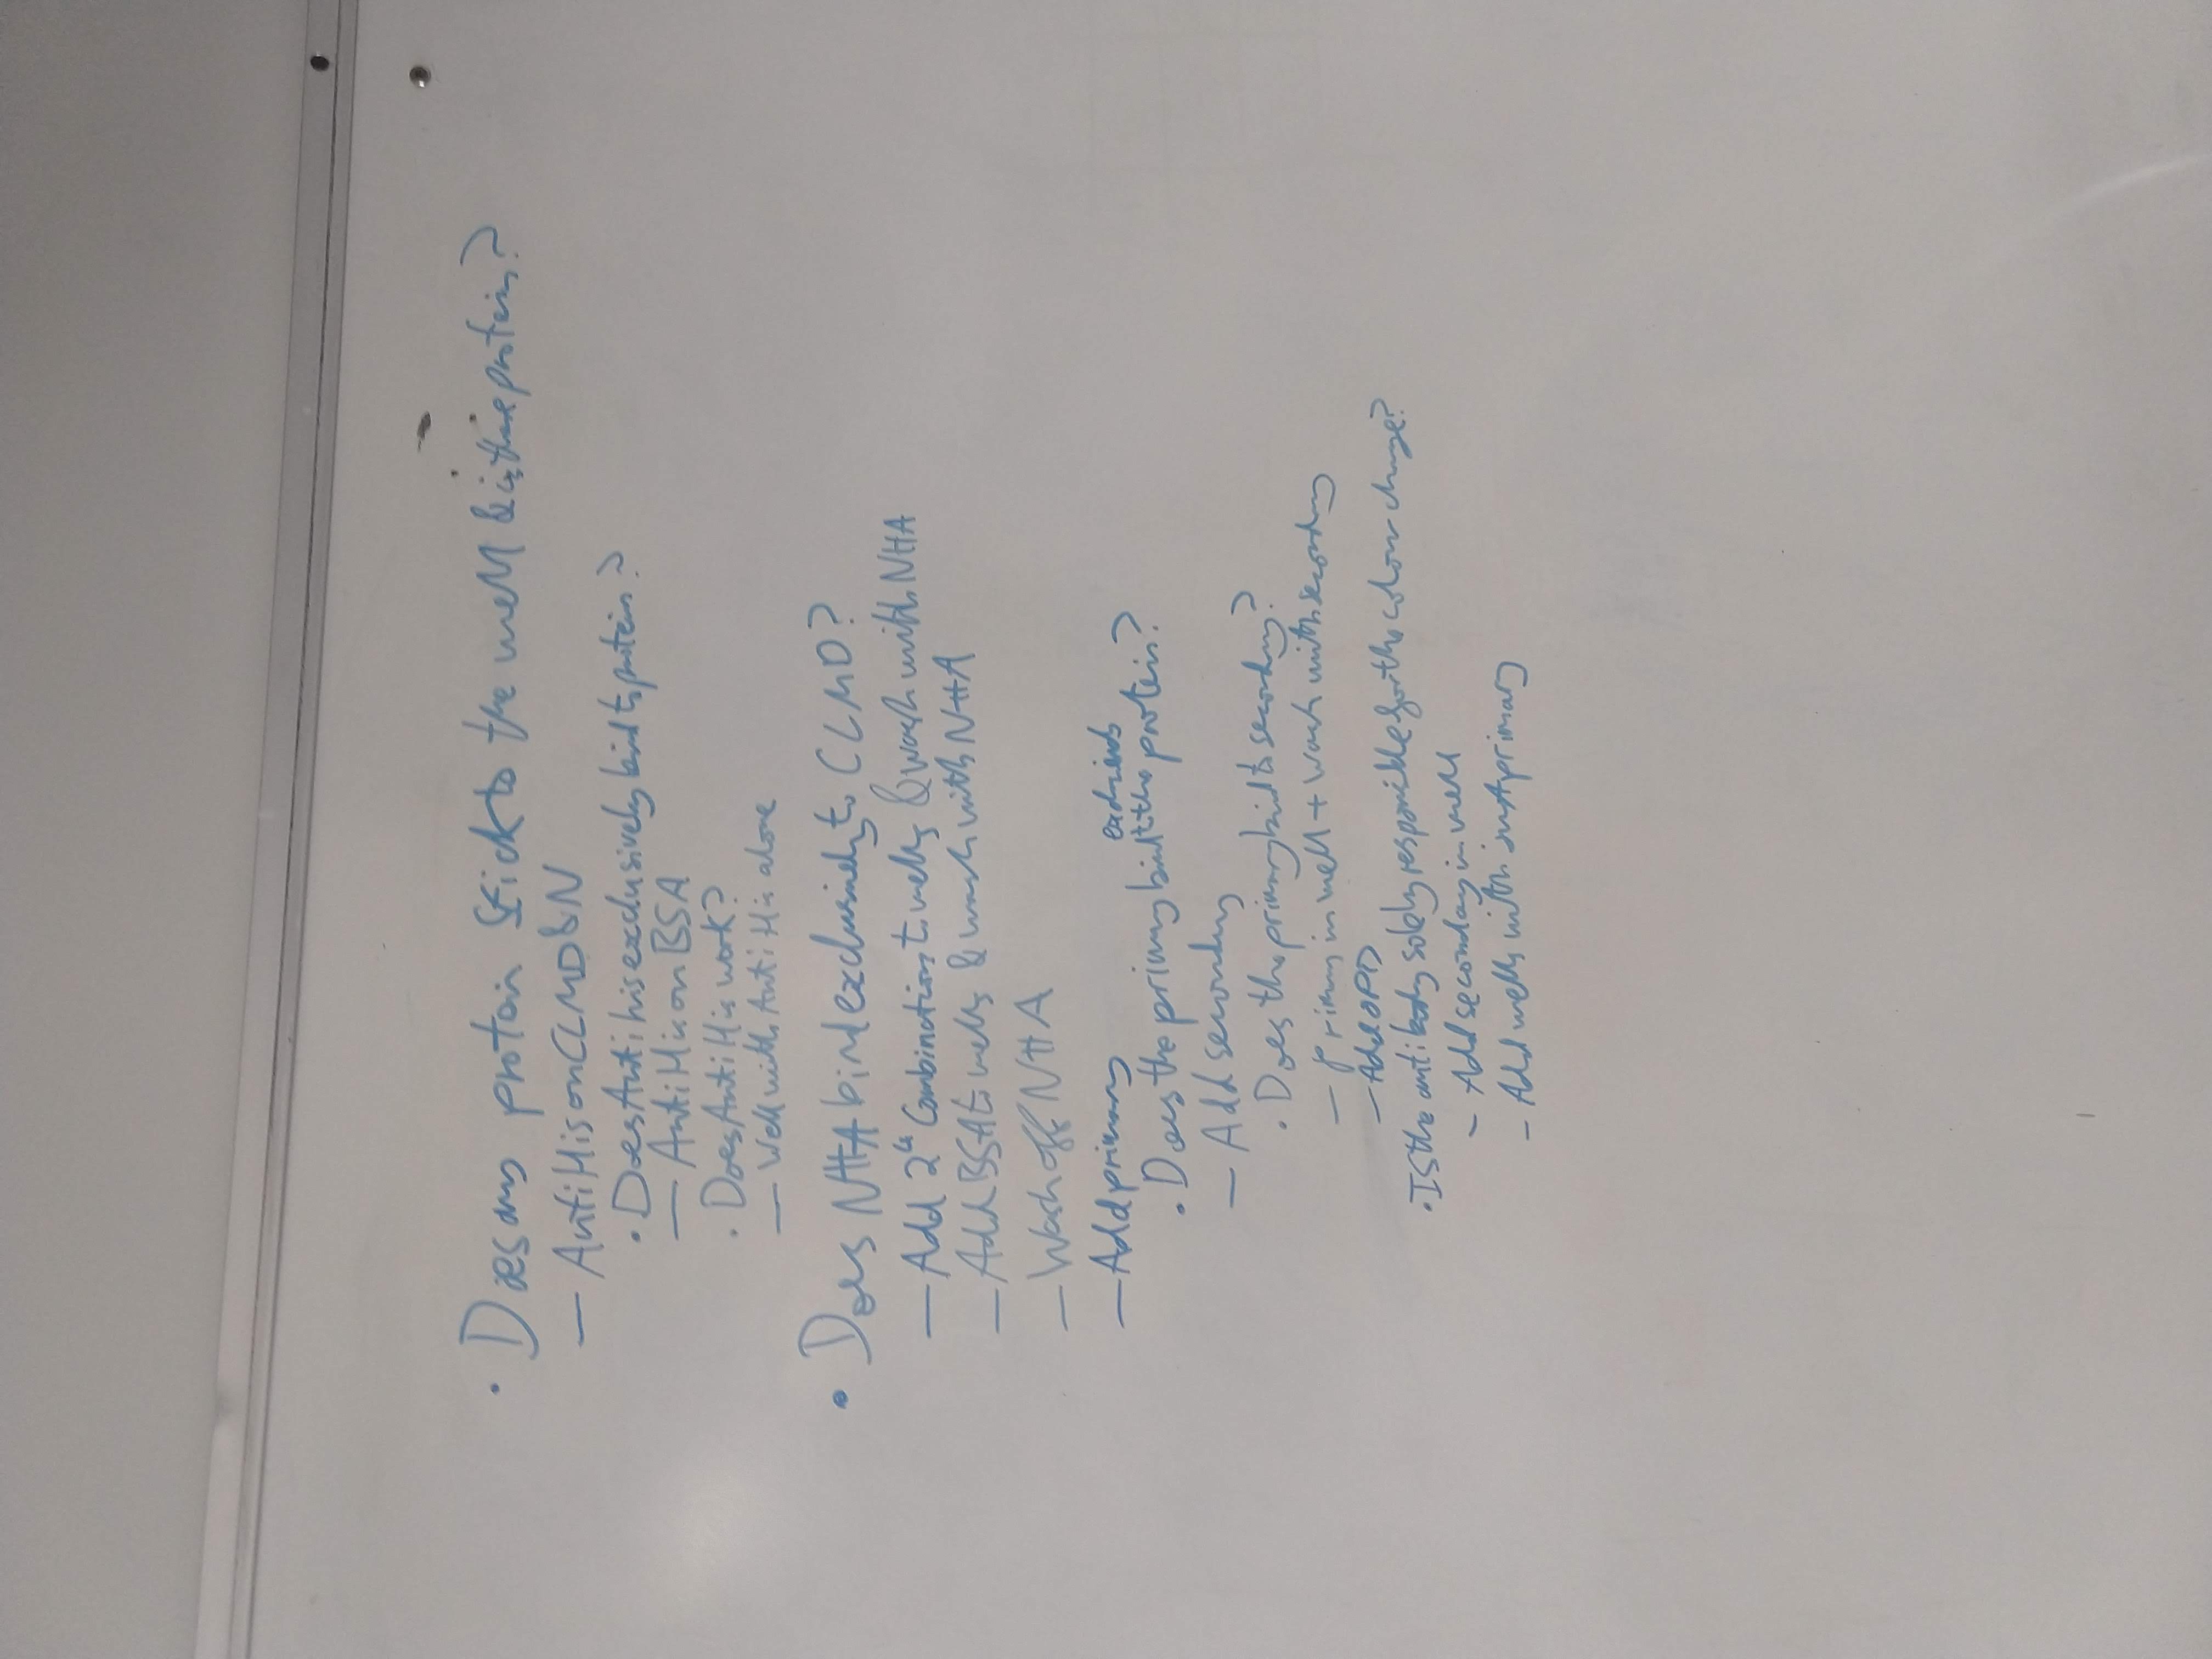 • Does any protein stick to the well & is there protein?
— Anti His on CLMD & N
• Does Anti his exclusively bind to protein?
— Anti His on BSA
• Does Anti His work?
— Well with Anti His alone
• Does NHA bind exclusively to CLMD?
— Add 2⁴ Combinations to wells & wash with NHA
— Add BSA to wells & wash with NHA
— Wash off NHA
— Add primary
• Does the primary bind to the protein?
— Add secondary
• Does the primary bind to secondary?
— primary in well + wash with secondary
— Add OPD
• Is the antibody solely responsible for the colour change?
– Add secondary in well
– Add wells with just primary